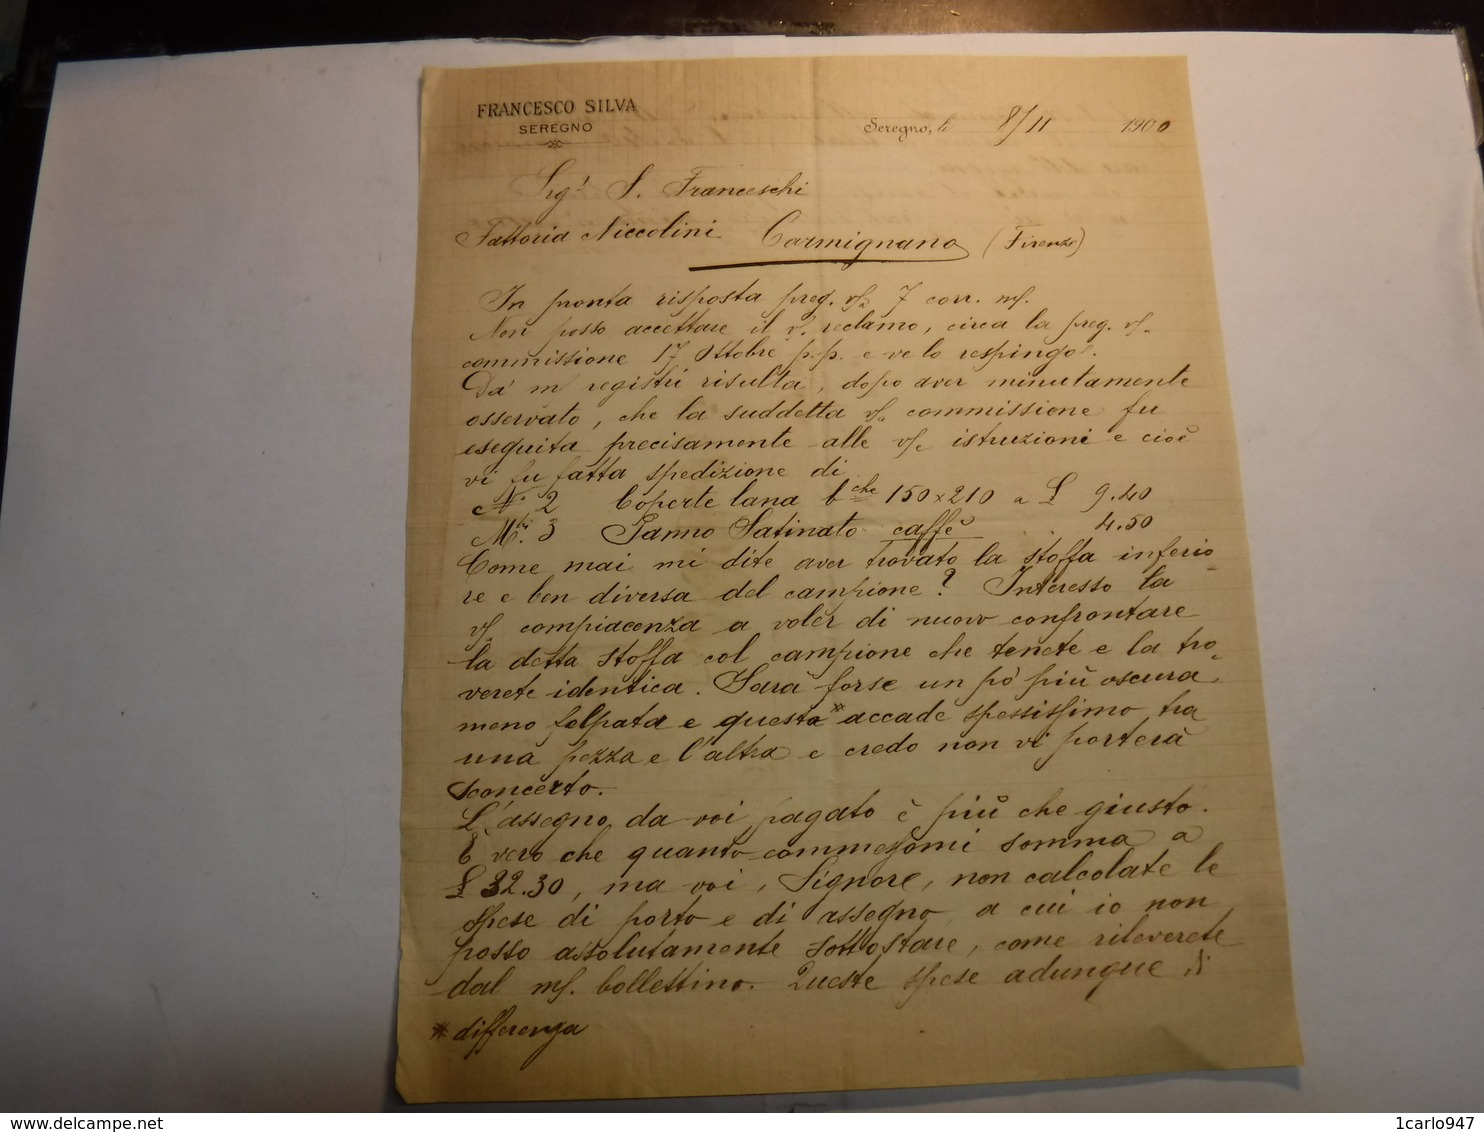 FRANCESCO SILVA
SEREGNO
Seregno, li 8/11 1900
Sigr S. Franceschi
Fattoria Niccolini Carmignano (Firenze)
In pronta risposta preg. vs/a 7 corr. ms/.
Non posso accettare il vs. reclamo, circa la preg. vs/.
commissione 17 Ottobre p.p. e ve lo respingo.
Da' m/ registri risulta, dopo aver minutamente
osservato, che la suddetta vs/a commissione fu
eseguita precisamente alle vs/e istruzioni e cioè
vi fu fatta spedizione di
No. 2 Coperte lana bche 150 x 210 a £ 9.40
Mti. 3 Panno Satinato caffè " 4.50
Come mai mi dite aver trovato la stoffa inferio-
re e ben diversa del campione? Interesso la
vs/. compiacenza a voler di nuovo confrontare
la detta stoffa col campione che tenete e la tro-
verete identica. Sarà forse un pò più oscura,
meno felpata e questa * accade spessissimo tra
una pezza e l'altra e credo non vi porterà
sconcerto.
L'assegno da voi pagato è più che giusto.
È vero che quanto commessomi somma a
£ 32.30, ma voi, Signore, non calcolate le
spese di porto e di assegno, a cui io non
posso assolutamente sottostare, come rileverete
dal ms/. bollettino. Queste spese adunque di
* differenza
1carlo947
delcampe.net